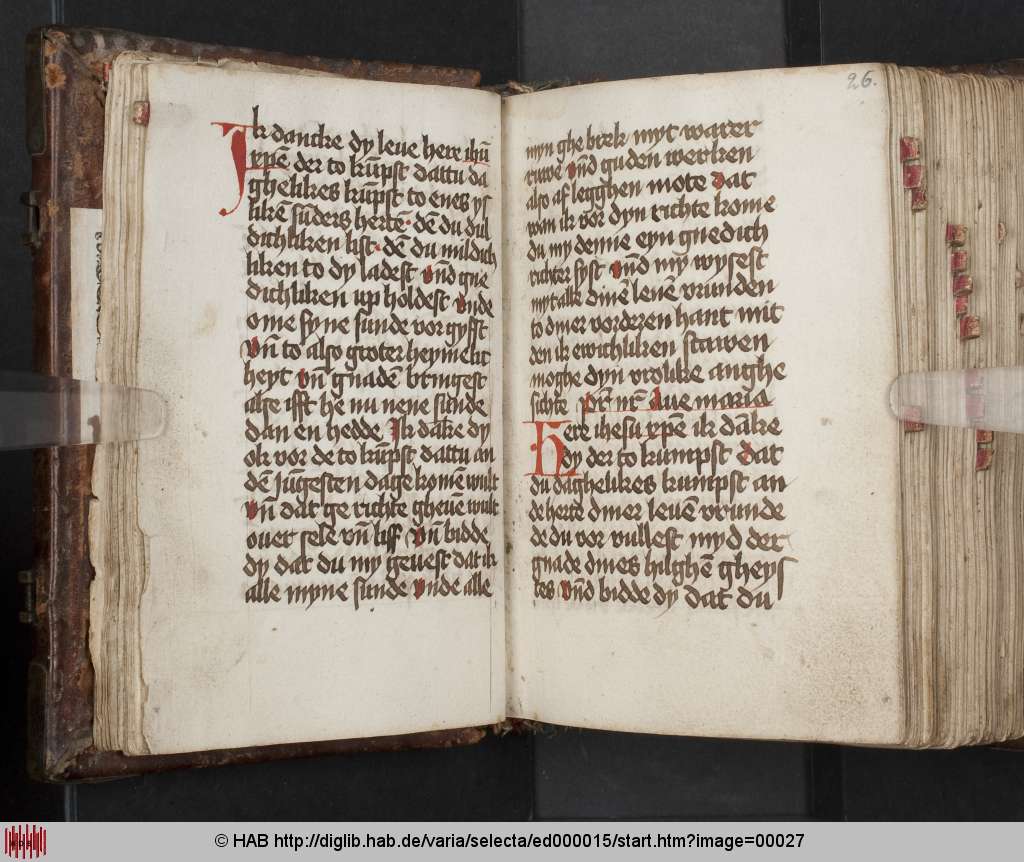 Ik dancke dy leue here ihũ
xpẽ der to kũpst dattu da
ghelikes kũpst to enes ys
likẽ sũders hertẽ· dẽ du dul
dichliken list· dẽ du mildich
liken to dy ladest vñd gne
dichliken up holdest vnde
ome syne sunde vor gyfft
vñ to also groter heymelic
heyt vñ gnadẽ bringest
alse ifft he nu nene sunde
dan en hedde Ik dãke dy
ok vor de to kũpst dattu an
dẽ jũgesten dage komẽ wult
vñ dat ge richte gheuẽ wult
ouer sele vñ liff vñ bidde
dy dat du my geuest dat ik
alle myne sunde vnde alle
26.
myn ghe brek myt warer
ruwe vñd guden werken
also af legghen mote dat
wan ik vor dyn richte kome
du my denne eyn gnedich
richter syst vñd my wysest
myt alle dinẽ leuẽ vrunden
to diner vorderen hant mit
den ik ewichliken scawen
moghe dyn vrolike anghe
sichte pr̃ nr̃ Aue maria
Here ihesu xpẽ ik dãke
dy der to kumpst dat
du daghelikes kumpst an
de herte diner leuẽ vrunde
de du vor vullest myd der
gnade dines hilghẽ gheys
tes vñd bidde dy dat du
© HAB http://diglib.hab.de/varia/selecta/ed000015/start.htm?image=00027